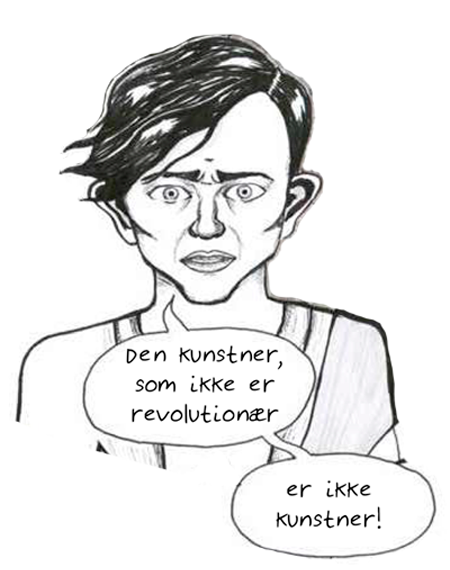 Den kunstner,
som ikke er
revolutionær
er ikke
kunstner!